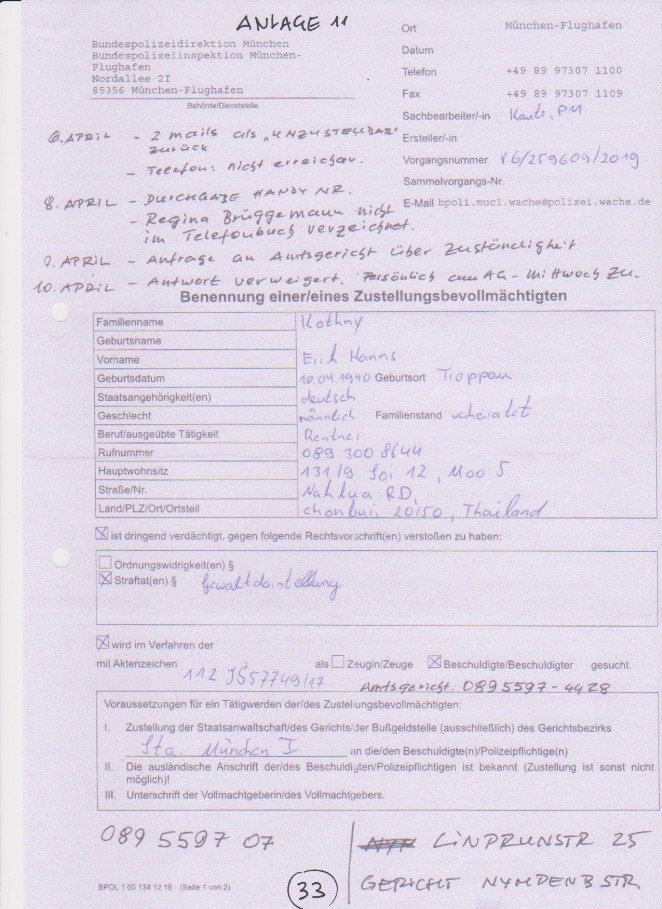 ANLAGE 11
Bundespolizeidirektion München
Bundespolizeiinspektion München-
Flughafen
Nordallee 2I
85356 München-Flughafen
Behörde/Dienststelle
Ort München-Flughafen
Datum
Telefon +49 89 97307 1100
Fax +49 89 97307 1109
Sachbearbeiter/-in PM
Ersteller/-in
Vorgangsnummer V6/259609/2019
Sammelvorgangs-Nr.
E-Mail bpoli.muc1.wache@polizei.wache.de
6. APRIL - 2 mails als "UNZUSTELLBAR"
zurück
- Telefon: nicht erreichbar.
8. APRIL - DURCHGABE HANDY NR.
- Regina Brüggemann nicht
im Telefonbuch verzeichnet.
9. APRIL - Anfrage an Amtsgericht über Zuständigkeit
10. APRIL - Antwort verweigert. Persönlich zum AG - Mittwoch zu.
Benennung einer/eines Zustellungsbevollmächtigten
Familienname Kothny
Geburtsname
Vorname Erik Hanns
Geburtsdatum 10.04.1940 Geburtsort Troppau
Staatsangehörigkeit(en) deutsch
Geschlecht männlich Familienstand verheiratet
Beruf/ausgeübte Tätigkeit Rentner
Rufnummer 089 300 8644
Hauptwohnsitz 131/9 Soi 12, Moo 5
Straße/Nr. Naklua RD,
Land/PLZ/Ort/Ortsteil Chonburi 20150, Thailand
ist dringend verdächtigt, gegen folgende Rechtsvorschrift(en) verstoßen zu haben:
Ordnungswidrigkeit(en) §
Straftat(en) § Gewaltdarstellung
wird im Verfahren der
mit Aktenzeichen 112 JS57749/17 als Zeugin/Zeuge Beschuldigte/Beschuldigter gesucht.
Amtsgericht: 0895597-4428
Voraussetzungen für ein Tätigwerden der/des Zustellungsbevollmächtigten:
I. Zustellung der Staatsanwaltschaft/des Gerichts/der Bußgeldstelle (ausschließlich) des Gerichtsbezirks
Sta. München I an die/den Beschuldigte(n)/Polizeipflichtige(n)
II. Die ausländische Anschrift der/des Beschuldigten/Polizeipflichtigen ist bekannt (Zustellung ist sonst nicht
möglich)!
III. Unterschrift der Vollmachtgeberin/des Vollmachtgebers.
089 5597 07
LINPRUNSTR 25
GERICHT NYMPENB STR
BPOL 1 00 134 12 16 (Seite 1 von 2)
33